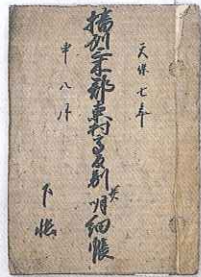 天保七年
播州三木郡東村高反別明細帳
申八月
下帳